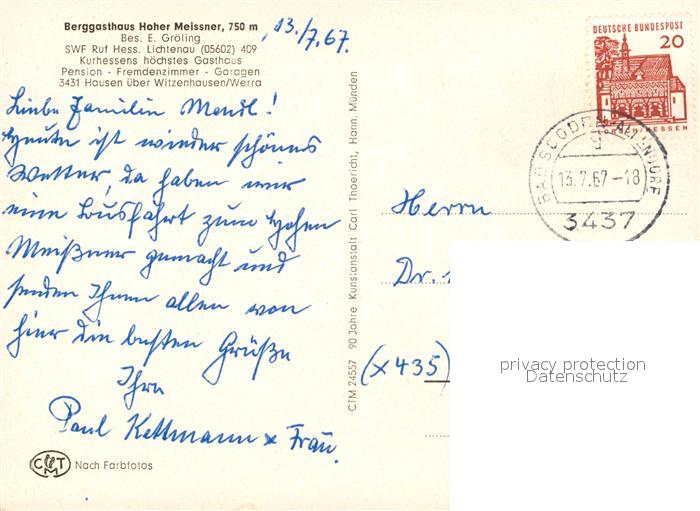 Berggasthaus Hoher Meissner, 750 m
Bes. E. Gröling
SWF Ruf Hess. Lichtenau (05602) 409
Kurhessens höchstes Gasthaus
Pension - Fremdenzimmer - Garagen
3431 Hausen über Witzenhausen/Werra
13./7.67.
Liebe Familie Mendl!
Heute ist wieder schönes
Wetter, da haben wir
eine Busfahrt zum Hohen
Meißner gemacht und
senden Ihnen allen von
hier die besten Grüße
Ihre
Paul Kettmann & Frau.
CMT
Nach Farbfotos
CTM 24557 90 Jahre Kunstanstalt Carl Thoericht, Hann. Münden
DEUTSCHE BUNDESPOST
20
LORSCH/HESSEN
BAD SOODEN-ALLENDORF
13.7.67-18
3437
Herrn
Dr.
(x435)
privacy protection
Datenschutz